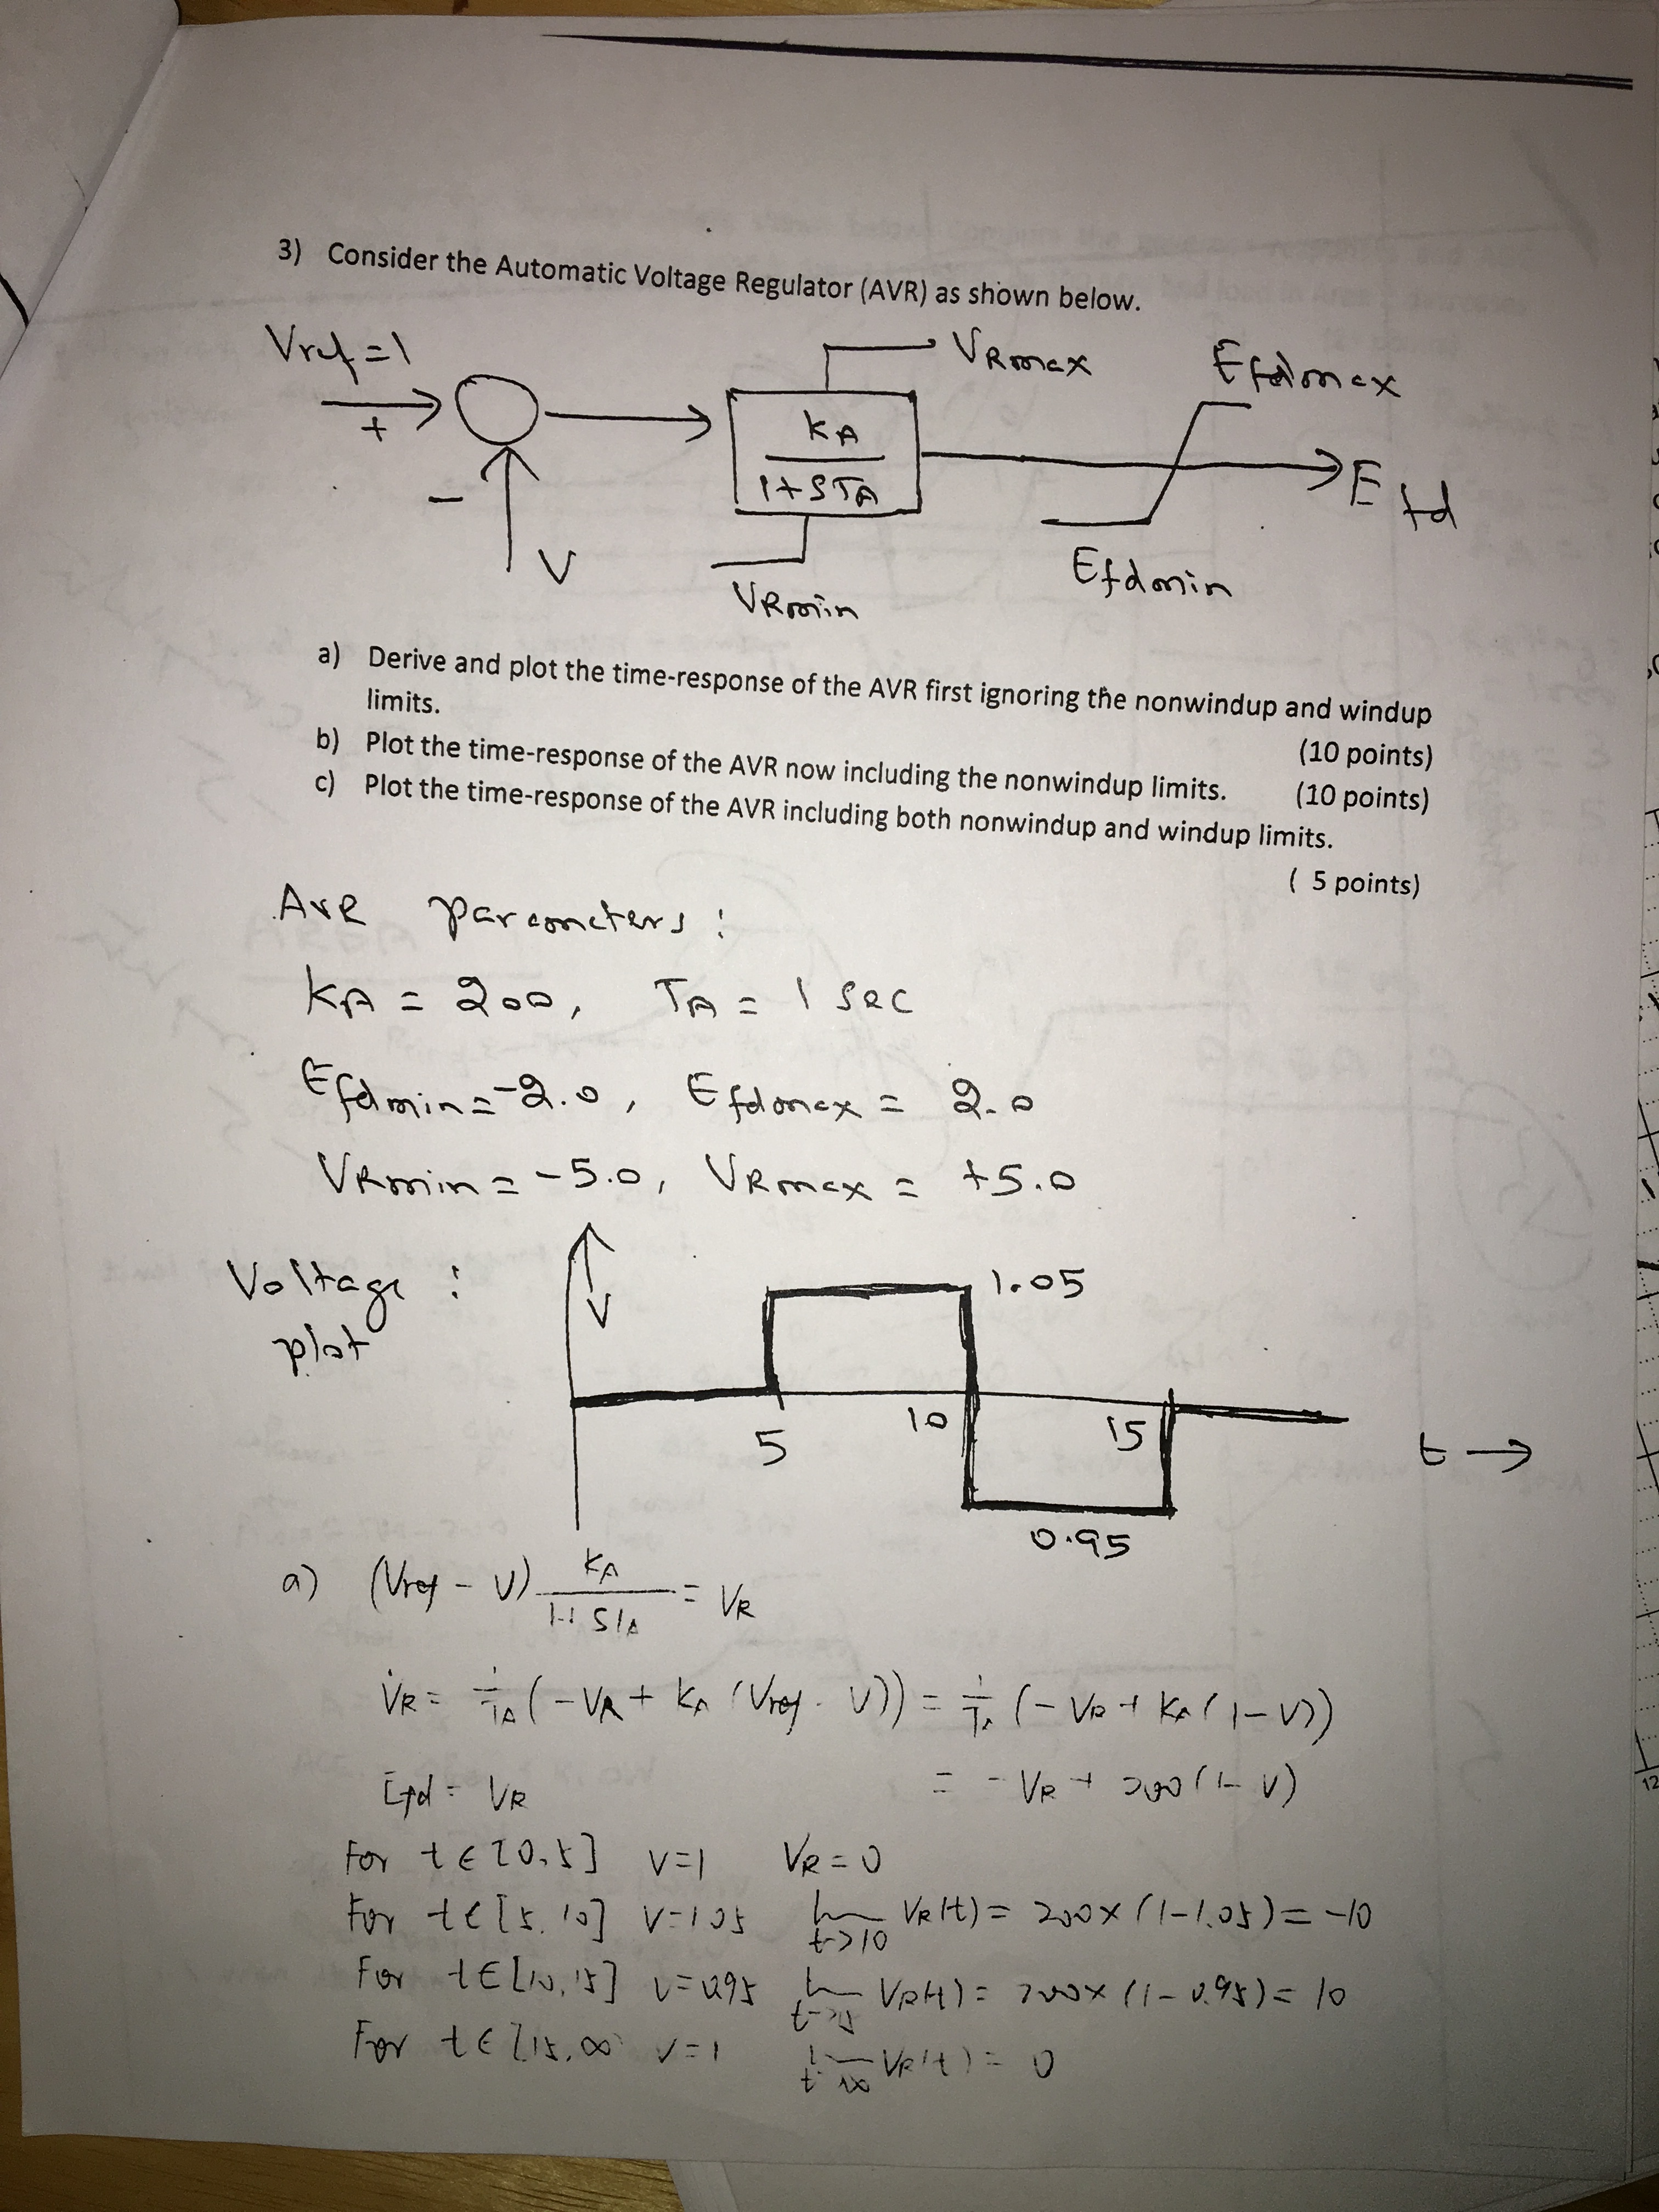 3) Consider the Automatic Voltage Regulator (AVR) as shown below.
Vref = 1
+
-
V
VRmax
KA
1+STA
VRmin
Efdmax
Efdmin
Efd
a) Derive and plot the time-response of the AVR first ignoring the nonwindup and windup
limits. (10 points)
b) Plot the time-response of the AVR now including the nonwindup limits. (10 points)
c) Plot the time-response of the AVR including both nonwindup and windup limits.
( 5 points)
AVR parameters :
KA = 200, TA = 1 sec
Efdmin = -2.0, Efdmax = 2.0
VRmin = -5.0, VRmax = +5.0
Voltage :
plot
V
1.05
5
10
15
t →
0.95
a) (Vref - V) KA / 1+STA = VR
V̇R = 1/TA (-VR + KA (Vref - V)) = 1/TA (-VR + KA (1-V))
Efd = VR = -VR + 200(1-V)
For t ∈ [0,5] V=1 VR = 0
For t ∈ [5,10] V=1.05 lim t->10 VR(t) = 200×(1-1.05) = -10
For t ∈ [10,15] V=0.95 lim t->15 VR(t) = 200×(1-0.95) = 10
For t ∈ [15,∞ V=1 lim t->∞ VR(t) = 0